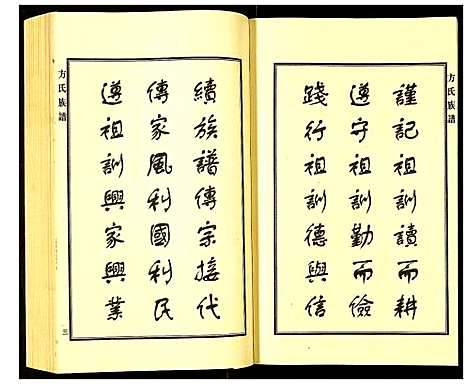 方氏族譜
謹記祖訓讀而耕
遵守祖訓勤而儉
踐行祖訓德與信
續族譜傳宗接代
傳家風利國利民
遵祖訓興家興業
方氏族譜
三